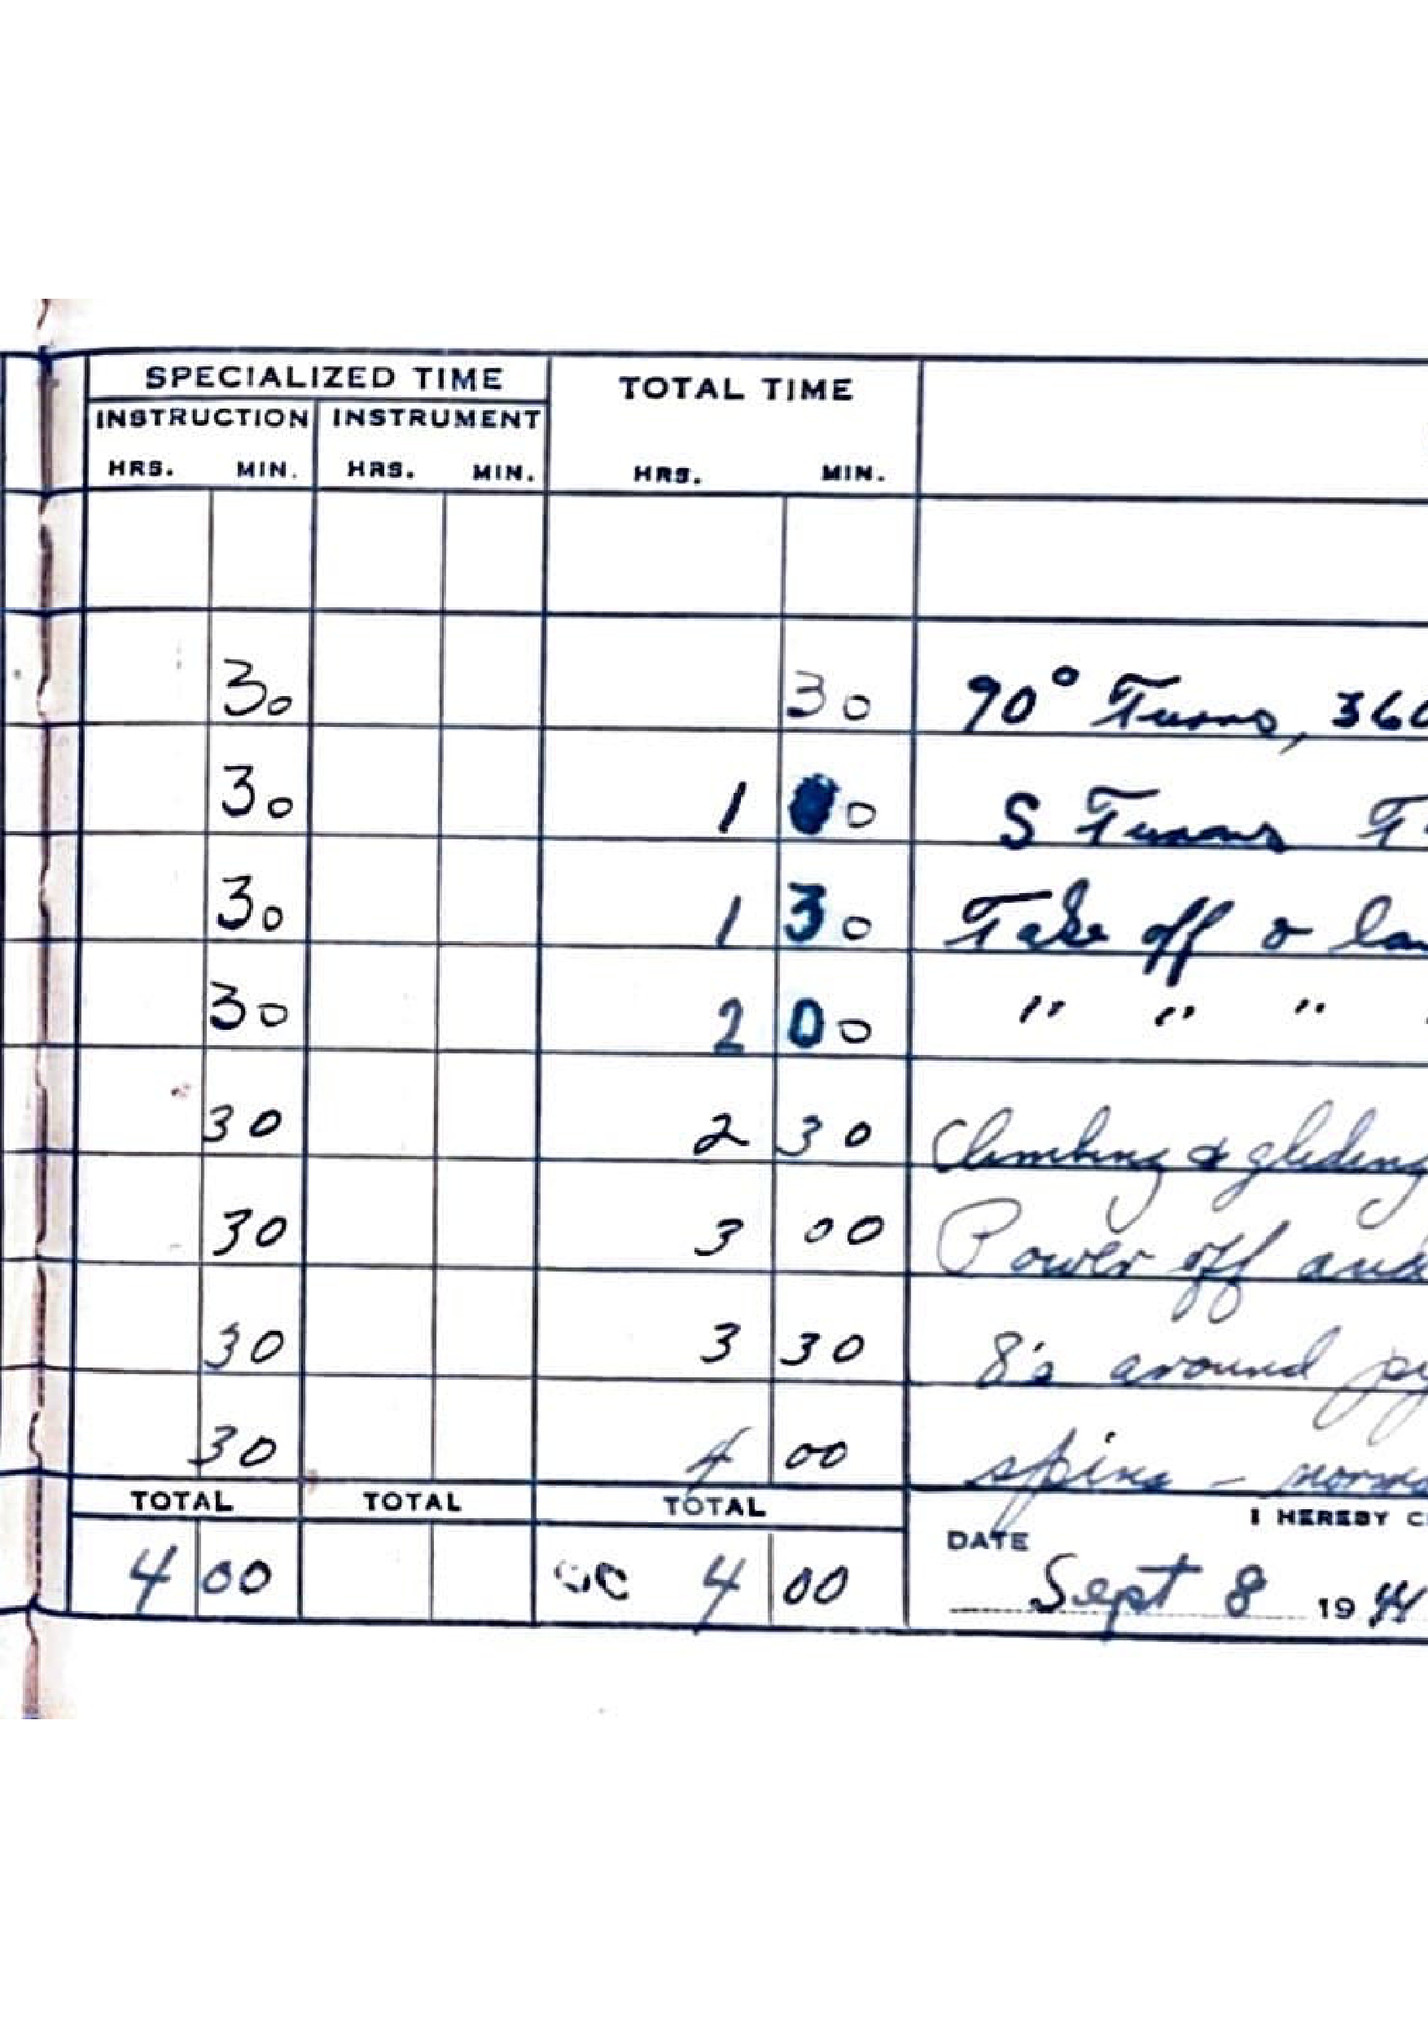 SPECIALIZED TIME TOTAL TIME
INSTRUCTION INSTRUMENT
HRS. MIN. HRS. MIN. HRS. MIN.
30 30 90° Turns, 360
30 1 00 S Turns
30 1 30 Take off &
30 2 00 " " "
30 2 30 Climbing & gliding
30 3 00 Power off and
30 3 30 8's around
30 4 00 spins -
TOTAL TOTAL TOTAL
I HEREBY
DATE
4 00 4 00 Sept 8 1944